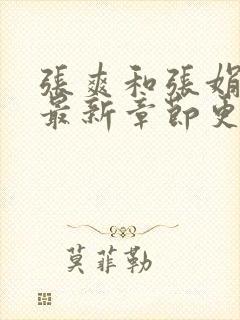 張爽和張娟
最新章節更
莫菲勒